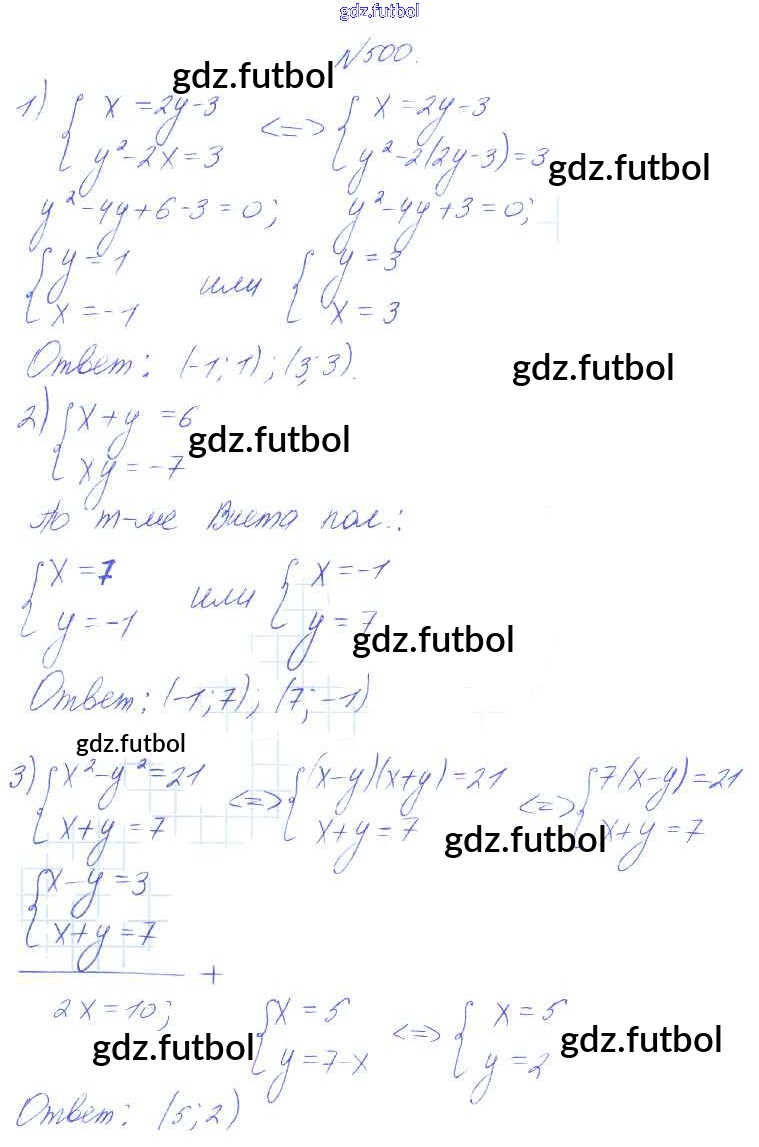 gdz.futbol
N500.
gdz.futbol
1) { x = 2y-3 <=> { x = 2y-3
{ y² - 2x = 3 { y² - 2(2y-3) = 3
gdz.futbol
y² - 4y + 6 - 3 = 0; y² - 4y + 3 = 0;
{ y = 1 или { y = 3
{ x = -1 { x = 3
Ответ: (-1; 1); (3; 3).
gdz.futbol
2) { x + y = 6
gdz.futbol
{ xy = -7
По т-ме Виета пол.:
{ x = 7 или { x = -1
{ y = -1 { y = 7
gdz.futbol
Ответ: (-1; 7); (7; -1)
gdz.futbol
3) { x² - y² = 21 <=> { (x-y)(x+y) = 21 <=> { 7(x-y) = 21
{ x + y = 7 { x + y = 7 { x + y = 7
gdz.futbol
{ x - y = 3
{ x + y = 7
+
2x = 10; { x = 5 <=> { x = 5
{ y = 7-x { y = 2
gdz.futbol gdz.futbol
Ответ: (5; 2)